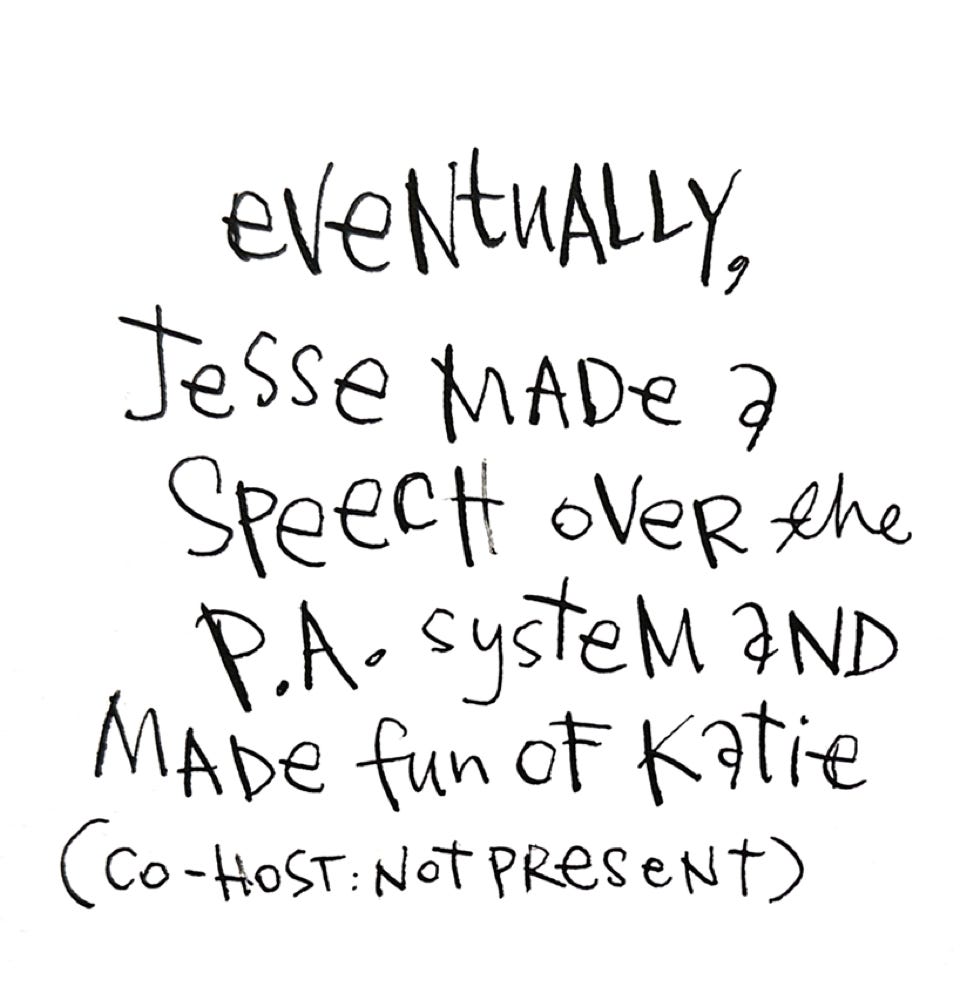 eventually,
Jesse made a
speech over the
P.A. system and
made fun of Katie
(co-host: not present)